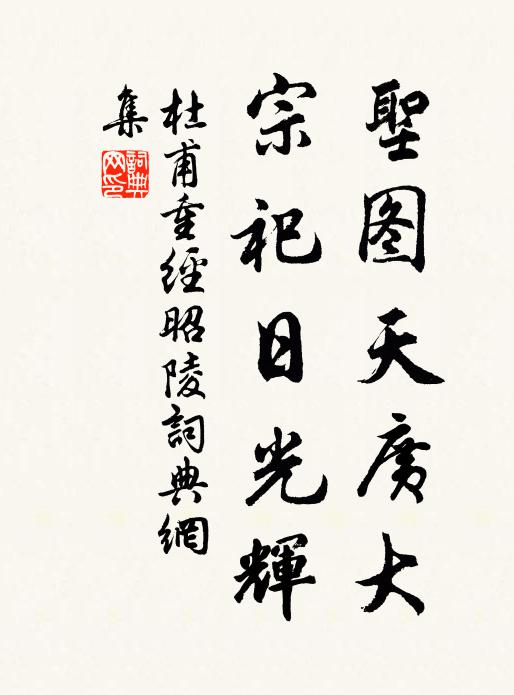 聖图天廣大
宗祀日光輝
杜甫重經昭陵詞典網
集
詞典
网印